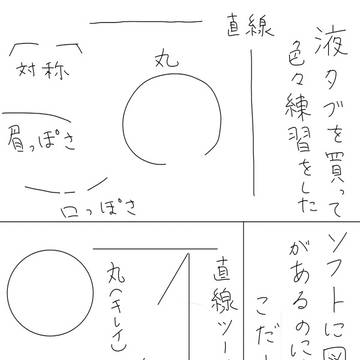 液タブを買って
色々練習をした
直線
丸
対称
眉っぽさ
口っぽさ
ソフトに
があるのに
こだ
直線ツー
丸(キレイ)